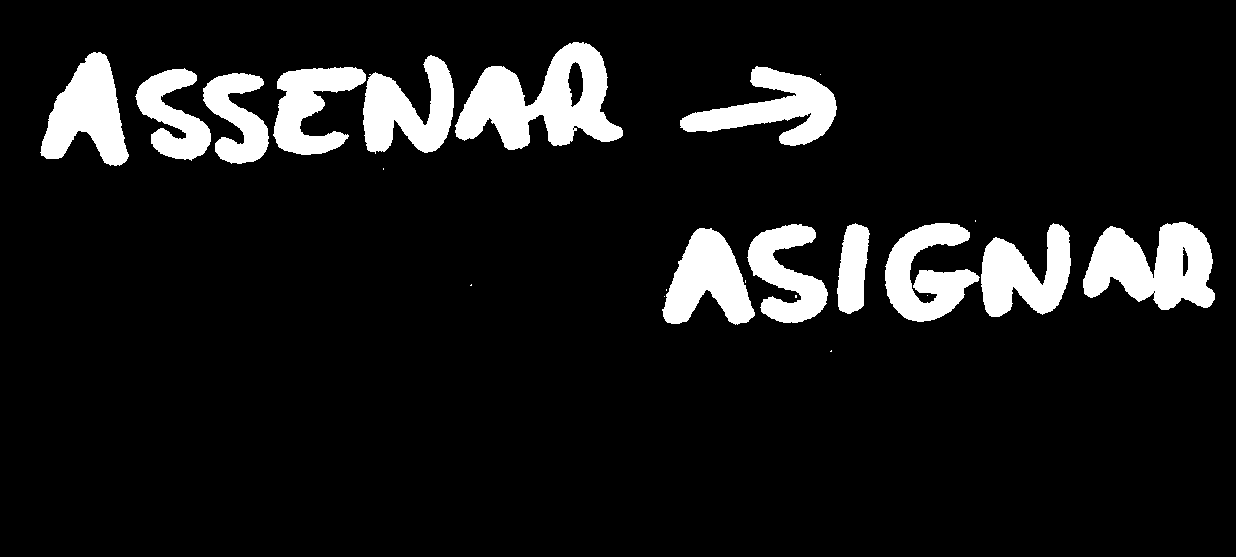 ASSENAR →
ASIGNAR